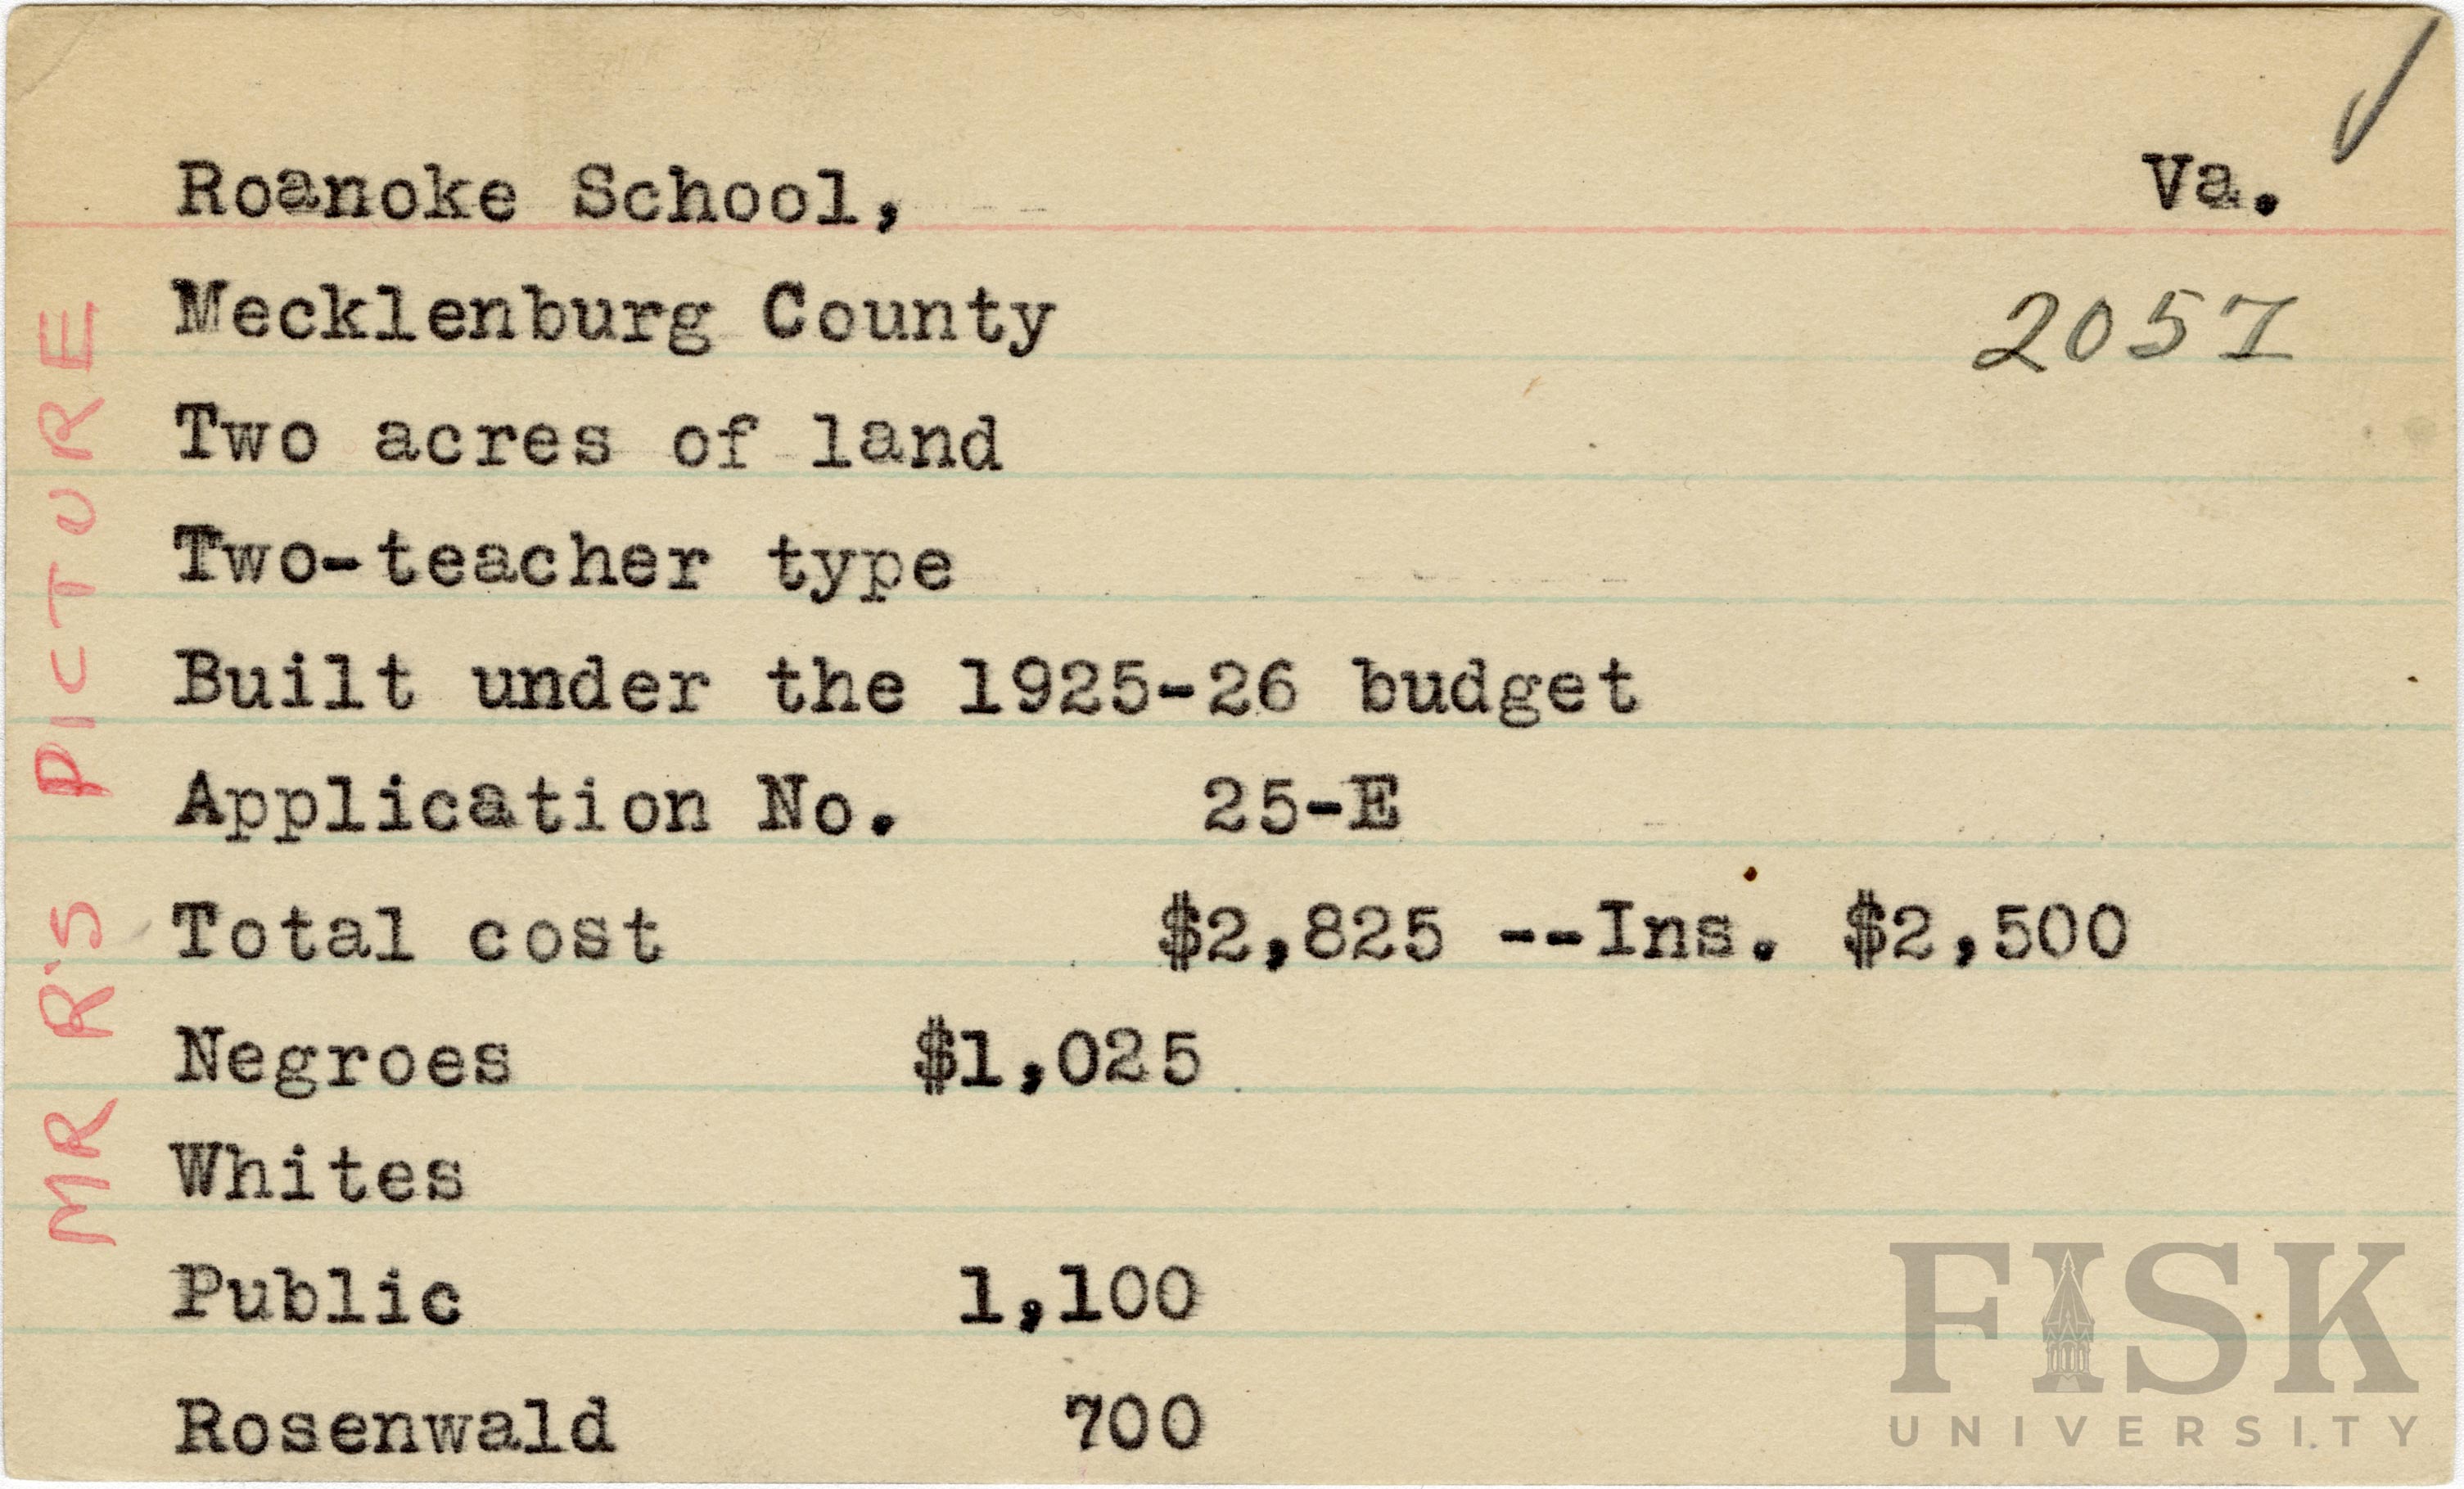 Roanoke School, Va.
Mecklenburg County 2057
Two acres of land
Two-teacher type
Built under the 1925-26 budget
Application No. 25-E
Total cost $2,825 --Ins. $2,500
Negroes $1,025
Whites
Public 1,100
Rosenwald 700
MR R'S PICTURE
FISK
UNIVERSITY